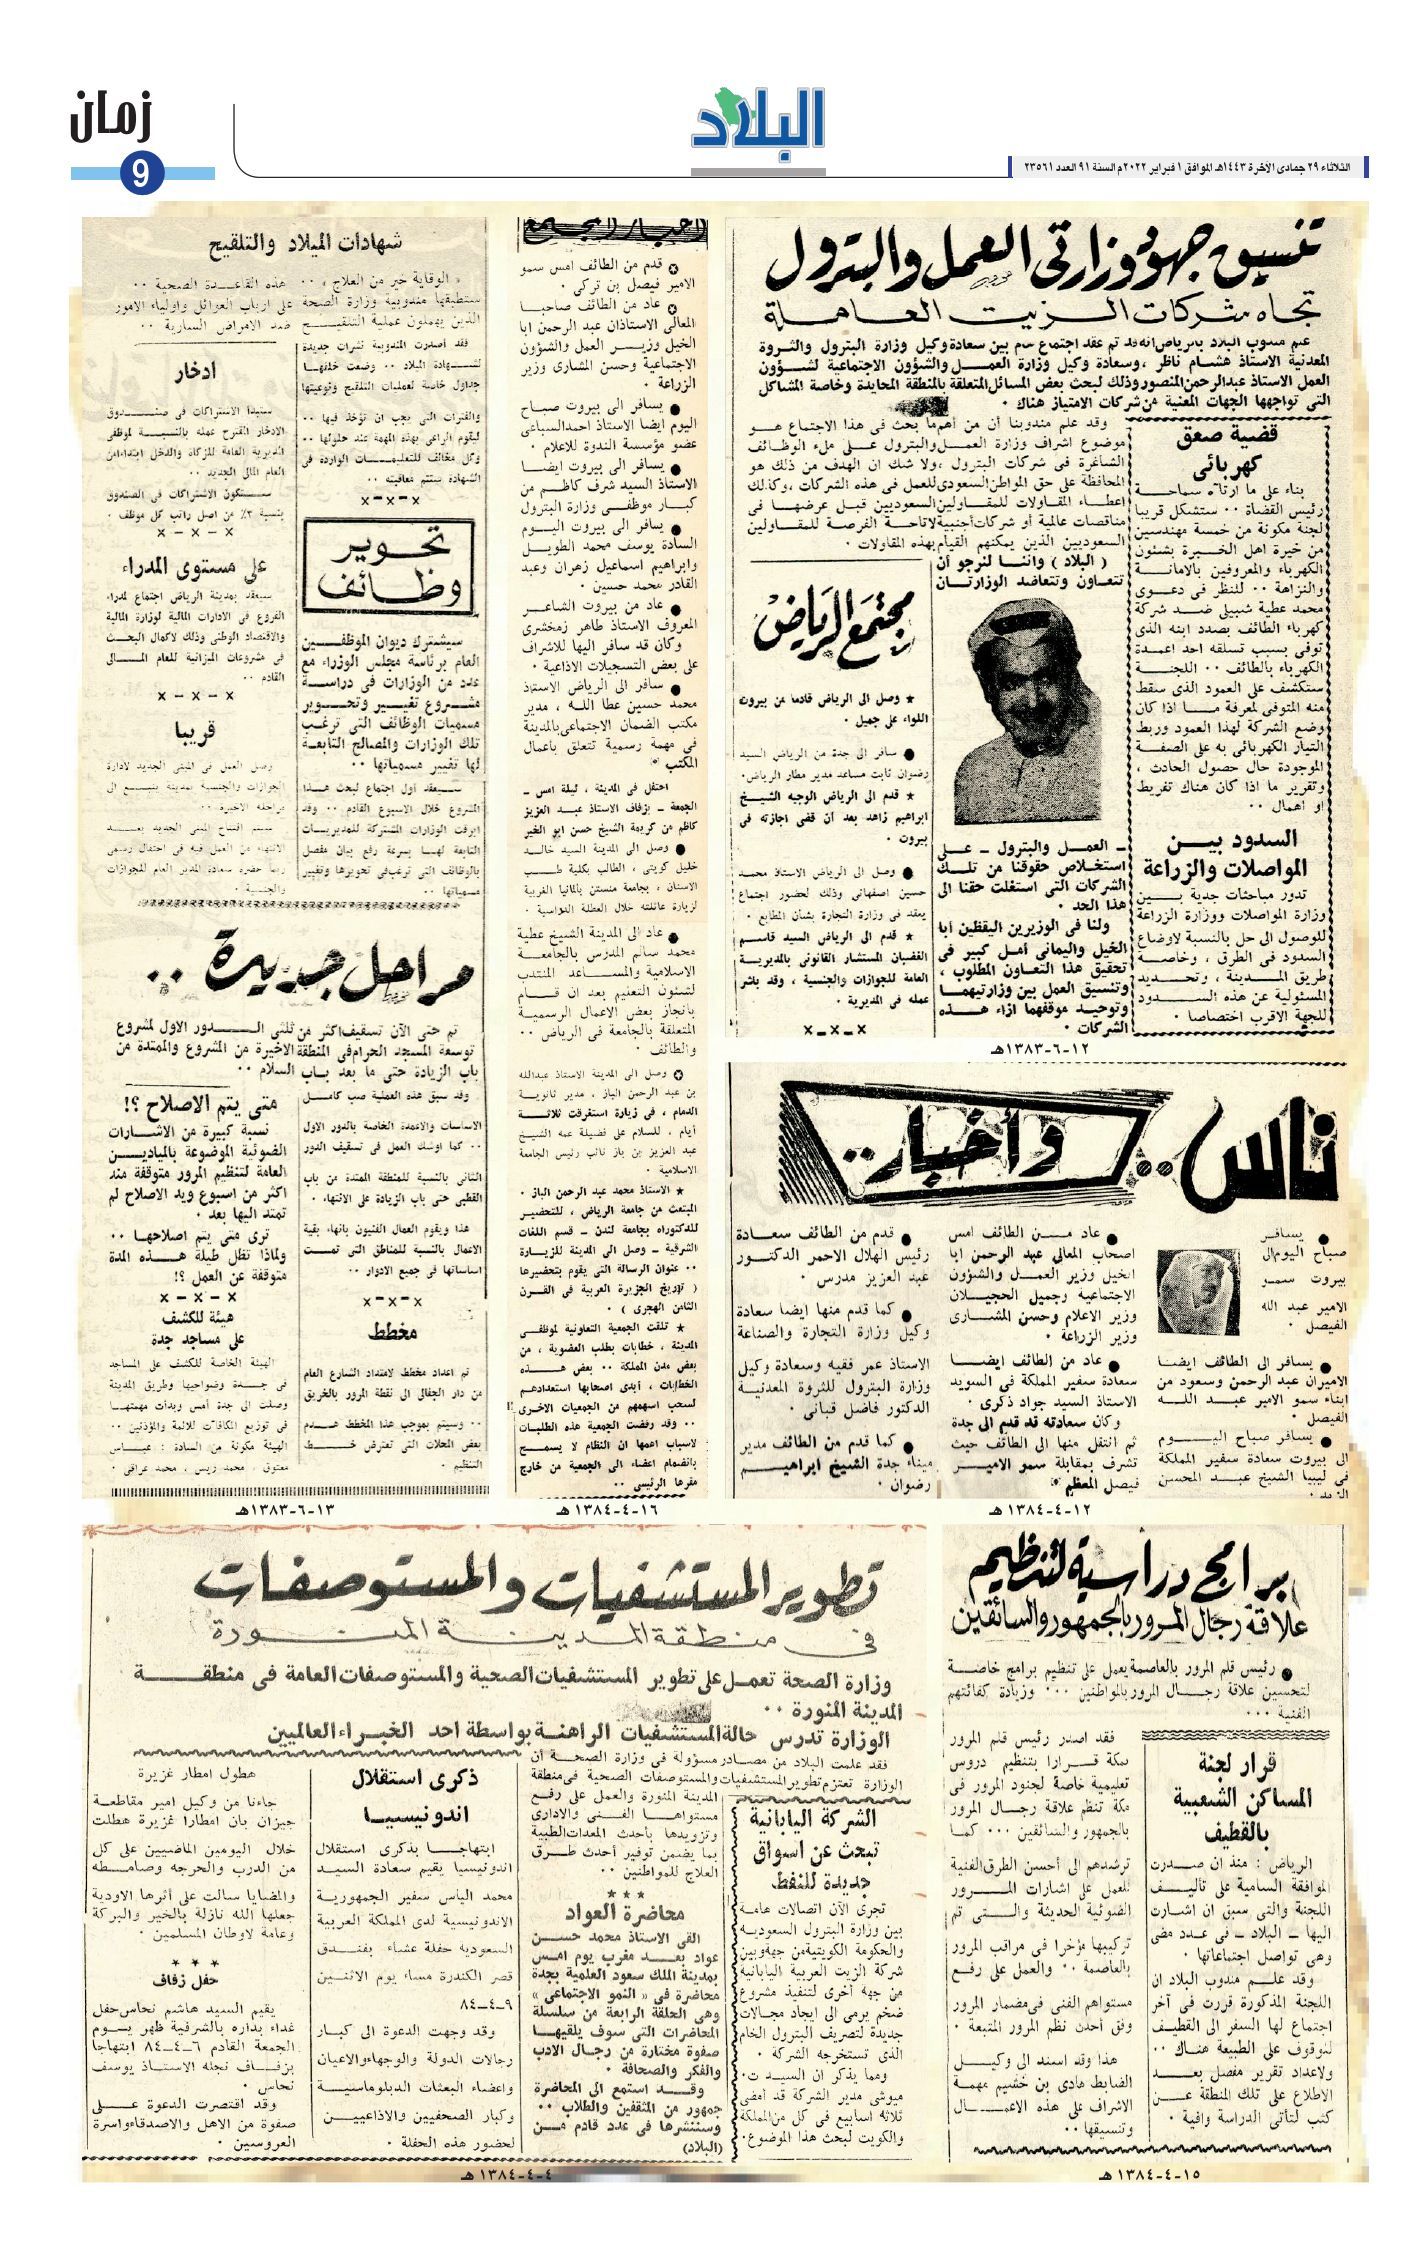 زمان
9
البلاد
الثلاثاء ٢٩ جمادى الآخرة ١٤٤٣هـ الموافق ١ فبراير ٢٠٢٢م السنة ٩١ العدد ٢٣٥٦١
تنسيق جهود وزارتى العمل والبترول
تجاه شركات الزيت العاملة
علم مندوب البلاد بالرياض انه قد تم عقد اجتماع هام بين سعادة وكيل وزارة البترول والثروة
المعدنية الاستاذ هشام ناظر ، وسعادة وكيل وزارة العمل والشؤون الاجتماعية لشؤون
العمل الاستاذ عبدالرحمن المنصور وذلك لبحث بعض المسائل المتعلقة بالمنطقة المحايدة وخاصة المشاكل
التى تواجهها الجهات المعنية من شركات الامتياز هناك .
وقد علم مندوبنا أن من أهم ما بحث فى هذا الاجتماع هو
موضوع اشراف وزارة العمل والبترول على ملء الوظائف
الشاغرة فى شركات البترول ، ولا شك ان الهدف من ذلك هو
المحافظة على حق المواطن السعودى للعمل فى هذه الشركات ، وكذلك
اعطاء المقاولات للمقاولين السعوديين قبل عرضها فى
مناقصات عالمية أو شركات أجنبية لاتاحة الفرصة للمقاولين
السعوديين الذين يمكنهم القيام بهذه المقاولات .
( البلاد ) واننا لنرجو أن
تتعاون وتتعاضد الوزارتان
ـ العمل والبترول ـ على
استخلاص حقوقنا من تلك
الشركات التى استغلت حقنا الى
هذا الحد .
ولنا فى الوزيرين اليقظين أبا
الخيل واليمانى أمل كبير فى
تحقيق هذا التعاون المطلوب ،
وتنسيق العمل بين وزارتيهما
وتوحيد موقفهما ازاء هذه
الشركات .
قضية صعق
كهربائى
بناء على ما ارتآه سماحة
رئيس القضاة .. ستشكل قريبا
لجنة مكونة من خمسة مهندسين
من خيرة اهل الخبرة بشئون
الكهرباء والمعروفين بالامانة
والنزاهة .. للنظر فى دعوى
محمد عطية شبيلى ضد شركة
كهرباء الطائف بصدد ابنه الذى
توفى بسبب تسلقه احد اعمدة
الكهرباء بالطائف .. اللجنة
ستكشف على العمود الذى سقط
منه المتوفى لمعرفة ما اذا كان
وضع الشركة لهذا العمود وربط
التيار الكهربائى به على الصفة
الموجودة حال حصول الحادث ،
وتقرير ما اذا كان هناك تفريط
او اهمال ..
السدود بين
المواصلات والزراعة
تدور مباحثات جدية بين
وزارة المواصلات ووزارة الزراعة
للوصول الى حل بالنسبة لاوضاع
السدود فى الطرق ، وخاصة
طريق المدينة ، وتحديد
المسئولية عن هذه السدود
للجهة الاقرب اختصاصا .
مجتمع الرياض
★ وصل الى الرياض قادما من بيروت
اللواء على جميل .
● سافر الى جدة من الرياض السيد
رضوان ثابت مساعد مدير مطار الرياض.
★ قدم الى الرياض الوجيه الشيخ
ابراهيم زاهد بعد أن قضى اجازته فى
بيروت .
● وصل الى الرياض الاستاذ محمد
حسين اصفهانى وذلك لحضور اجتماع
يعقد فى وزارة التجارة بشأن المطابع .
★ قدم الى الرياض السيد قاسم
القضبان المستشار القانونى بالمديرية
العامة للجوازات والجنسية ، وقد باشر
عمله فى المديرية .
x-x-x
١٢-٦-١٣٨٣هـ
اخبار المجتمع
✪ قدم من الطائف امس سمو
الامير فيصل بن تركى .
✪ عاد من الطائف صاحبا
المعالى الاستاذان عبد الرحمن ابا
الخيل وزير العمل والشؤون
الاجتماعية وحسن المشارى وزير
الزراعة .
● يسافر الى بيروت صباح
اليوم ايضا الاستاذ احمد السباعى
عضو مؤسسة الندوة للاعلام .
● يسافر الى بيروت ايضا
الاستاذ السيد شرف كاظم من
كبار موظفى وزارة البترول
● يسافر الى بيروت اليوم
السادة يوسف محمد الطويل
وابراهيم اسماعيل زهران وعبد
القادر محمد حسين .
● عاد من بيروت الشاعر
المعروف الاستاذ طاهر زمخشرى
وكان قد سافر اليها للاشراف
على بعض التسجيلات الاذاعية .
● سافر الى الرياض الاستاذ
محمد حسين عطا الله ، مدير
مكتب الضمان الاجتماعى بالمدينة
فى مهمة رسمية تتعلق باعمال
المكتب .
احتفل فى المدينة ، ليلة امس ـ
الجمعة ـ بزفاف الاستاذ عبد العزيز
كاظم من كريمة الشيخ حسن ابو الخير
● وصل الى المدينة السيد خالد
خليل كريتى ، الطالب بكلية طب
الاسنان ، بجامعة منستن بالمانيا الغربية
لزيارة عائلته خلال العطلة الدراسية .
● عاد الى المدينة الشيخ عطية
محمد سالم المدرس بالجامعة
الاسلامية والمساعد المنتدب
لشئون التعليم بعد ان قام
بانجاز بعض الاعمال الرسمية
المتعلقة بالجامعة فى الرياض ..
والطائف .
✪ وصل الى المدينة الاستاذ عبدالله
بن عبد الرحمن الباز ، مدير ثانوية
الدمام ، فى زيارة استغرقت ثلاثة
أيام ، للسلام على فضيلة عمه الشيخ
عبد العزيز بن باز نائب رئيس الجامعة
الاسلامية .
★ الاستاذ محمد عبد الرحمن الباز .
المبتعث من جامعة الرياض ، للتحضير
للدكتوراه بجامعة لندن ـ قسم اللغات
الشرقية ـ وصل الى المدينة للزيارة
.. عنوان الرسالة التى يقوم بتحضيرها
( تاريخ الجزيرة العربية فى القرن
الثامن الهجرى ) .
★ تلقت الجمعية التعاونية لموظفى
المدينة ، خطابات بطلب العضوية ، من
بعض مدن المملكة .. بعض هذه
الخطابات ، أبدى اصحابها استعدادهم
لسحب اسهمهم من الجمعيات الاخرى
.. وقد رفضت الجمعية هذه الطلبات
لاسباب اهمها ان النظام لا يسمح
بانضمام اعضاء الى الجمعية من خارج
مقرها الرئيسى ..
١٦-٤-١٣٨٤ هـ
شهادات الميلاد والتلقيح
« الوقاية خير من العلاج » .. هذه القاعدة الصحية ..
ستطبقها مندوبية وزارة الصحة على ارباب العوائل واولياء الامور
الذين يهملون عملية التلقيح ضد الامراض السارية ..
فقد أصدرت المندوبية نشرات جديدة
لشهادة الميلاد .. وضعت خلفها
جداول خاصة لعمليات التلقيح ونوعيتها
والفترات التى يجب ان تؤخذ فيها ..
ليقوم الراعى بهذه المهمة عند حلولها ..
وكل مخالف للتعليمات الواردة فى
الشهادة ستتم معاقبته ..
x-x-x
تحوير
وظائف
سيشترك ديوان الموظفين
العام برئاسة مجلس الوزراء مع
عدد من الوزارات فى دراسة
مشروع تغيير وتحوير
مسميات الوظائف التى ترغب
تلك الوزارات والمصالح التابعة
لها تغيير مسمياتها ..
سيعقد أول اجتماع لبحث هذا
المشروع خلال الاسبوع القادم .. وقد
ابرقت الوزارات المشتركة للمديريات
التابعة لها بسرعة رفع بيان مفصل
بالوظائف التى ترغب فى تحويرها وتغيير
مسمياتها ..
ادخار
ستبدأ الاشتراكات فى صندوق
الادخار المقترح عمله بالنسبة لموظفى
المديرية العامة للزكاة والدخل ابتداء من
العام المالى الجديد ..
ستكون الاشتراكات فى الصندوق
بنسبة ٢٪ من اصل راتب كل موظف .
x-x-x
على مستوى المدراء
سيعقد بمدينة الرياض اجتماع لمدراء
الفروع فى الادارات المالية لوزارة المالية
والاقتصاد الوطنى وذلك لاكمال البحث
فى مشروعات الميزانية للعام المالى
القادم ..
x-x-x
قريبا
وصل العمل فى المبنى الجديد لادارة
الجوازات والجنسية بمدينة ينبع الى
مراحله الاخيرة ..
سيتم افتتاح المبنى الجديد بعد
الانتهاء من العمل فيه فى احتفال رسمى
ربما حضره سعادة المدير العام للجوازات
والجنسية .
مراحل جديدة ..
تم حتى الآن تسقيف اكثر من ثلثى الدور الاول لمشروع
توسعة المسجد الحرام فى المنطقة الاخيرة من المشروع والممتدة من
باب الزيادة حتى ما بعد باب السلام ..
وقد سبق هذه العملية صب كامل
الاساسات والاعمدة الخاصة بالدور الاول
.. كما اوشك العمل فى تسقيف الدور
الثانى بالنسبة للمنطقة الممتدة من باب
القطبى حتى باب الزيادة على الانتهاء .
هذا ويقوم العمال الفنيون بانهاء بقية
الاعمال بالنسبة للمناطق التى تمت
اساساتها فى جميع الادوار ..
x-x-x
مخطط
تم اعداد مخطط لامتداد الشارع العام
من دار الجفالى الى نقطة المرور بالخريق
.. وسيتم بموجب هذا المخطط هدم
بعض المحلات التى تعترض خط
التنظيم .
متى يتم الاصلاح ؟!
نسبة كبيرة من الاشارات
الضوئية الموضوعة بالميادين
العامة لتنظيم المرور متوقفة منذ
اكثر من اسبوع ويد الاصلاح لم
تمتد اليها بعد .
ترى متى يتم اصلاحها ..
ولماذا تظل طيلة هذه المدة
متوقفة عن العمل ؟!
x-x-x
هيئة للكشف
على مساجد جدة
الهيئة الخاصة للكشف على المساجد
فى جدة وضواحيها وطريق المدينة
وصلت الى جدة أمس وبدأت مهمتها
فى توزيع المكافآت للائمة والمؤذنين ..
الهيئة مكونة من السادة : عباس
معتوق ، محمد ريس ، محمد عراقى .
١٣-٦-١٣٨٣هـ
ناس .. وأخبار ..
● يسافر
صباح اليوم الى
بيروت سمو
الامير عبد الله
الفيصل .
● يسافر الى الطائف ايضا
الاميران عبد الرحمن وسعود من
ابناء سمو الامير عبد الله
الفيصل .
● يسافر صباح اليوم
الى بيروت سعادة سفير المملكة
فى ليبيا الشيخ عبد المحسن
● عاد من الطائف امس
اصحاب المعالى عبد الرحمن ابا
الخيل وزير العمل والشؤون
الاجتماعية وجميل الحجيلان
وزير الاعلام وحسن المشارى
وزير الزراعة .
● عاد من الطائف ايضا
سعادة سفير المملكة فى السويد
الاستاذ السيد جواد ذكرى .
وكان سعادته قد قدم الى جدة
ثم انتقل منها الى الطائف حيث
تشرف بمقابلة سمو الامير
فيصل المعظم .
● قدم من الطائف سعادة
رئيس الهلال الاحمر الدكتور
عبد العزيز مدرس .
● كما قدم منها ايضا سعادة
وكيل وزارة التجارة والصناعة
الاستاذ عمر فقيه وسعادة وكيل
وزارة البترول للثروة المعدنية
الدكتور فاضل قبانى .
● كما قدم من الطائف مدير
ميناء جدة الشيخ ابراهيم
رضوان .
١٢-٤-١٣٨٤ هـ
برامج دراسية لتنظيم
علاقة رجال المرور بالجمهور والسائقين
● رئيس قلم المرور بالعاصمة يعمل على تنظيم برامج خاصة
لتحسين علاقة رجال المرور بالمواطنين ... وزيادة كفائتهم
الفنية ...
فقد اصدر رئيس قلم المرور
بمكة قرارا بتنظيم دروس
تعليمية خاصة لجنود المرور فى
مكة تنظم علاقة رجال المرور
بالجمهور والسائقين ... كما
ترشدهم الى أحسن الطرق الفنية
للعمل على اشارات المرور
الضوئية الحديثة والتى تم
تركيبها مؤخرا فى مراقب المرور
بالعاصمة .. والعمل على رفع
مستواهم الفنى فى مضمار المرور
وفق أحدث نظم المرور المتبعة .
هذا وقد اسند الى وكيل
الضابط هادى بن خشيم مهمة
الاشراف على هذه الاعمال
وتنسيقها ..
قرار لجنة
المساكن الشعبية
بالقطيف
الرياض : منذ ان صدرت
الموافقة السامية على تأليف
اللجنة والتى سبق ان اشارت
اليها ـ البلاد ـ فى عدد مضى
وهى تواصل اجتماعاتها .
وقد علم مندوب البلاد ان
اللجنة المذكورة قررت فى آخر
اجتماع لها السفر الى القطيف
للوقوف على الطبيعة هناك ..
ولاعداد تقرير مفصل بعد
الاطلاع على تلك المنطقة عن
كثب لتأتى الدراسة وافية .
١٥-٤-١٣٨٤ هـ
تطوير المستشفيات والمستوصفات
فى منطقة المدينة المنورة
وزارة الصحة تعمل على تطوير المستشفيات الصحية والمستوصفات العامة فى منطقة
المدينة المنورة ..
الوزارة تدرس حالة المستشفيات الراهنة بواسطة احد الخبراء العالميين
فقد علمت البلاد من مصادر مسؤولة فى وزارة الصحة أن
الوزارة تعتزم تطوير المستشفيات والمستوصفات الصحية فى منطقة
المدينة المنورة والعمل على رفع
مستواها الفنى والادارى
وتزويدها بأحدث المعدات الطبية
بما يضمن توفير أحدث طرق
العلاج للمواطنين ..
★★★
محاضرة العواد
القى الاستاذ محمد حسن
عواد بعد مغرب يوم امس
بمدينة الملك سعود العلمية بجدة
محاضرة فى « النمو الاجتماعى »
وهى الحلقة الرابعة من سلسلة
المحاضرات التى سوف يلقيها
صفوة مختارة من رجال الادب
والفكر والصحافة .
وقد استمع الى المحاضرة
جمهور من المثقفين والطلاب ..
وسننشرها فى عدد قادم من
(البلاد)
الشركة اليابانية
تبحث عن اسواق
جديدة للنفط
تجرى الآن اتصالات هامة
بين وزارة البترول السعودية
والحكومة الكويتية من جهة وبين
شركة الزيت العربية اليابانية
من جهة أخرى لتنفيذ مشروع
ضخم يرمى الى ايجاد مجالات
جديدة لتصريف البترول الخام
الذى تستخرجه الشركة .
ومما يذكر ان السيد ت.
ميوشى مدير الشركة قد أمضى
ثلاثة اسابيع فى كل من المملكة
والكويت لبحث هذا الموضوع.
ذكرى استقلال
اندونيسيا
ابتهاجا بذكرى استقلال
اندونيسيا يقيم سعادة السيد
محمد الياس سفير الجمهورية
الاندونيسية لدى المملكة العربية
السعودية حفلة عشاء بفندق
قصر الكندرة مساء يوم الاثنين
٩-٤-٨٤
وقد وجهت الدعوة الى كبار
رجالات الدولة والوجهاء والاعيان
واعضاء البعثات الدبلوماسية
وكبار الصحفيين والاذاعيين
لحضور هذه الحفلة .
هطول امطار غزيرة
جاءنا من وكيل امير مقاطعة
جيزان بان امطارا غزيرة هطلت
خلال اليومين الماضيين على كل
من الدرب والحرجه وصامطه
والمضايا سالت على أثرها الاودية
جعلها الله نازلة بالخير والبركة
وعامة لاوطان المسلمين .
★★★
حفل زفاف
يقيم السيد هاشم نحاس حفل
غداء بداره بالشرفية ظهر يوم
الجمعة القادم ٦-٤-٨٤ ابتهاجا
بزفاف نجله الاستاذ يوسف
نحاس .
وقد اقتصرت الدعوة على
صفوة من الاهل والاصدقاء واسرة
العروسين .
٤-٤-١٣٨٤ هـ